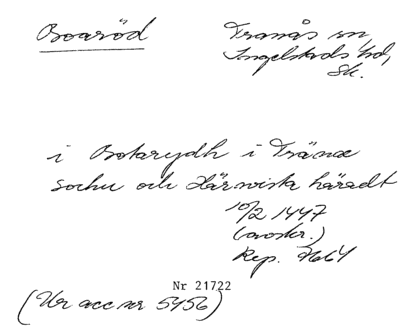 Boaröd
Tranås sn,
Ingelstads hd,
Sk.
i Botarydh i Träna
sochn och Härvista häradt
10/2 1447
(avskr.)
Rep. 7664
Nr 21722
(Ur acc nr 5456)